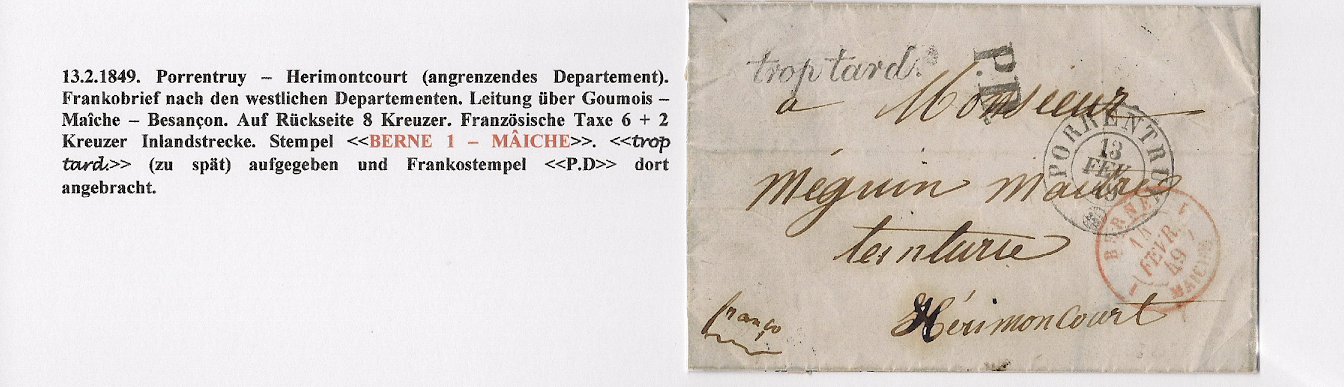 13.2.1849. Porrentruy – Herimontcourt (angrenzendes Departement).
Frankobrief nach den westlichen Departementen. Leitung über Goumois –
Maîche – Besançon. Auf Rückseite 8 Kreuzer. Französische Taxe 6 + 2
Kreuzer Inlandstrecke. Stempel <<BERNE 1 – MÂICHE>>. <<trop
tard.>> (zu spät) aufgegeben und Frankostempel <<P.D>> dort
angebracht.
trop tard.
P.D.
à Monsieur
PORRENTRUY
13
FEV
49
Méguin Maitre
teinturie
BERNE 1
14
FEVR.
49
MAICHE
franco
Hérimoncourt